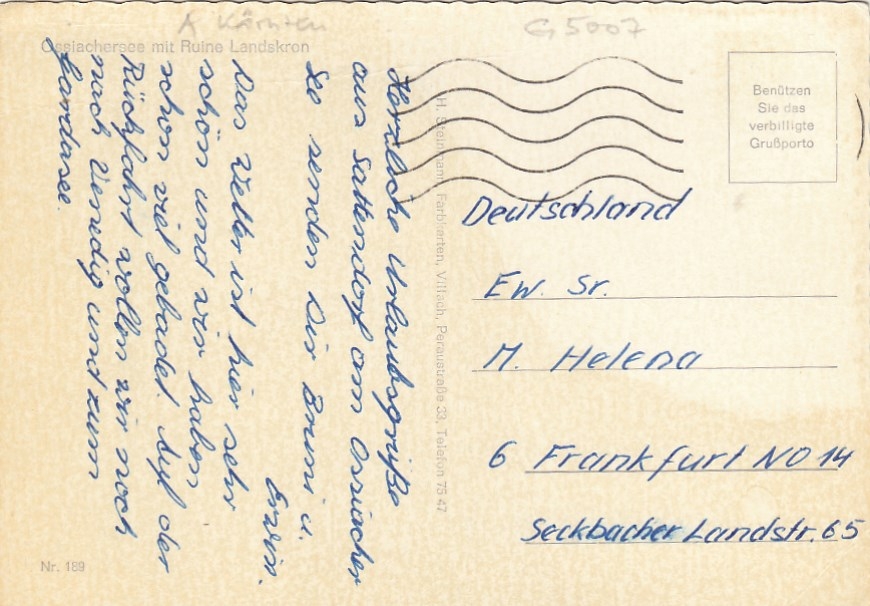 A Kärnten
G 5007
Ossiachersee mit Ruine Landskron
Herzliche Urlaubsgrüße
aus Sattendorf am Ossiacher
See senden Dir Bruni u.
Erwin.
Das Wetter ist hier sehr
schön und wir haben
schon viel gebadet. Auf der
Rückfahrt wollen wir noch
nach Venedig und zum
Gardasee.
Nr. 189
H. Steinmann, Farbkarten, Villach, Peraustraße 33, Telefon 75 47
Benützen
Sie das
verbilligte
Grußporto
Deutschland
Ew. Sr.
M. Helena
6 Frankfurt NO 14
Seckbacher Landstr. 65